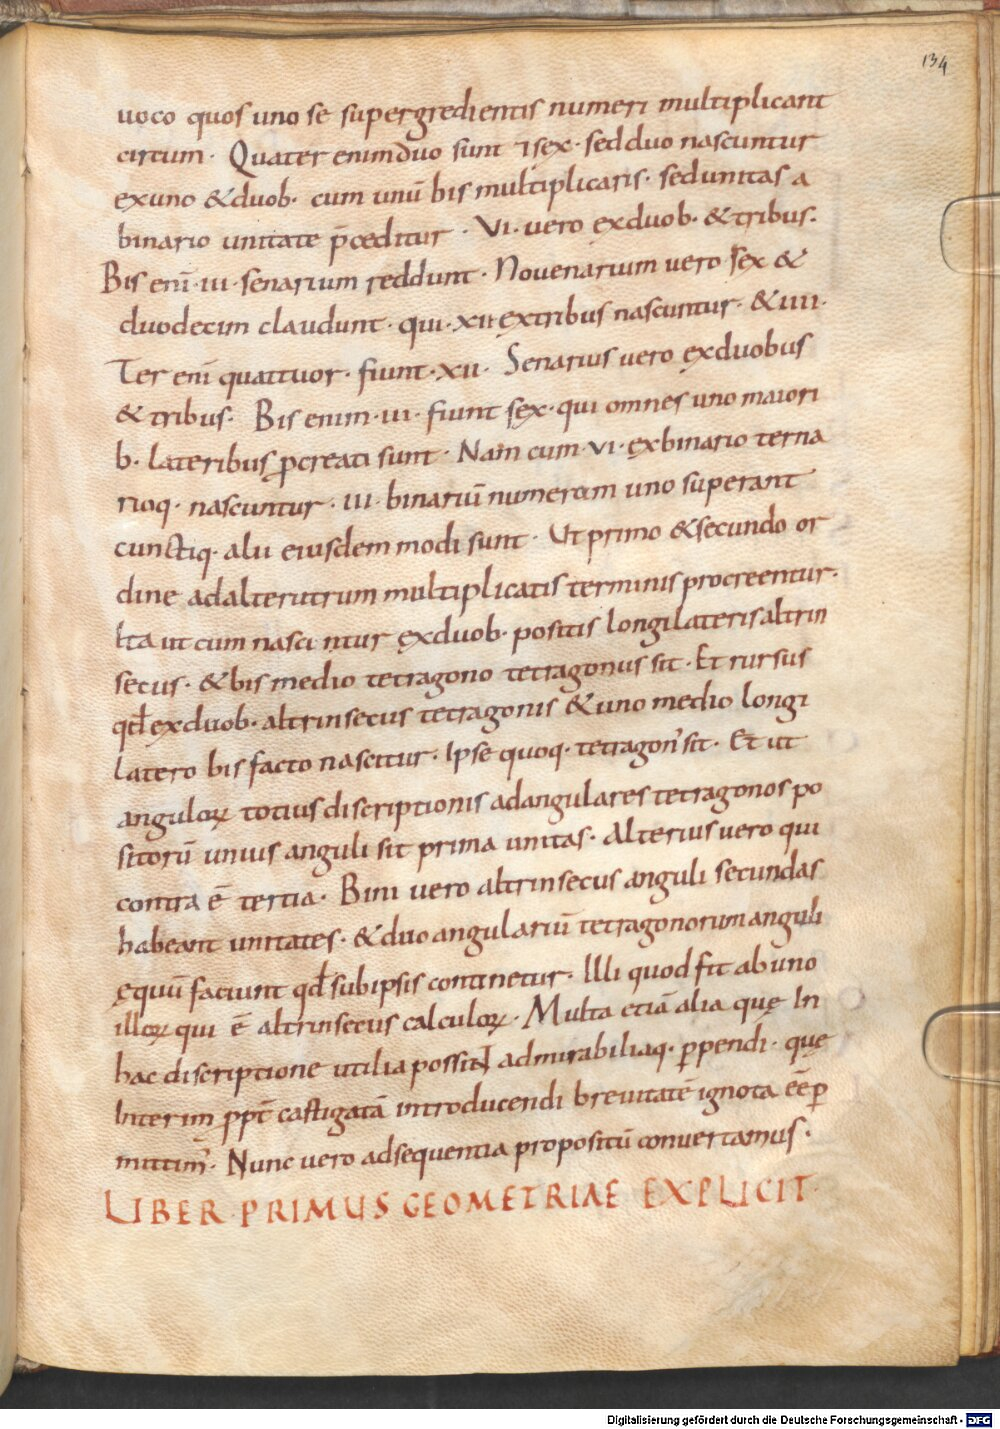 134
uoco quos uno se supergredientis numeri multiplicant
cirtum · Quater enim duo sunt ⁊ sex · sed duo nascuntur
ex uno & duob· cum unū bis multiplicaris · sed unitas a
binario unitate p̄ceditur · VI · uero ex duob· & tribus ·
Bis eni · III · senarium reddunt · Nouenarium uero sex &
duodecim claudunt · qui · XII ex tribus nascuntur · & IIII ·
Ter eni quattuor · fiunt · XII · Senarius uero ex duobus
& tribus · Bis enim · III · fiunt sex · qui omnes uno maiori
b· lateribus ꝓcreati sunt · Nam cum · VI · ex binario terna
rioq· nascuntur · III · binariū numerum uno superant
cunctiq· alii eiusdem modi sunt · Ut primo & secundo or
dine ad alterutrum multiplicatis terminis procreentur ·
Ita ut cum nascintur ex duob· positis longilateris altrin
secus · & bis medio tetragono tetragonus sit · Et rursus
qđ ex duob· altrinsecus tetragonis & uno medio longi
latero bis facto nascitur · Ipse quoq· tetragon' sit · Et ut
anguloꝝ totius discriptionis ad angulares tetragonos po
sitorū unius anguli sit prima unitas · Alterius uero qui
contra ē tertia · Bini uero altrinsecus anguli secundas
habeant unitates · & duo angulariū tetragonorum anguli
ęquū faciunt qđ sub ipsis continetur · Illi quod fit ab uno
illoꝝ qui ē altrinsecus calculoꝝ · Multa etiā alia quę In
hac discriptione utilia possint admirabiliaq· ꝑpendi · quę
Interim ꝓpt̄ castigatā introducendi breuitatē ignota eē ꝑ
mittim' · Nunc uero ad sequentia propositū conuertamus ·
LIBER PRIMUS GEOMETRIAE EXPLICIT ·
Digitalisierung gefördert durch die Deutsche Forschungsgemeinschaft - DFG